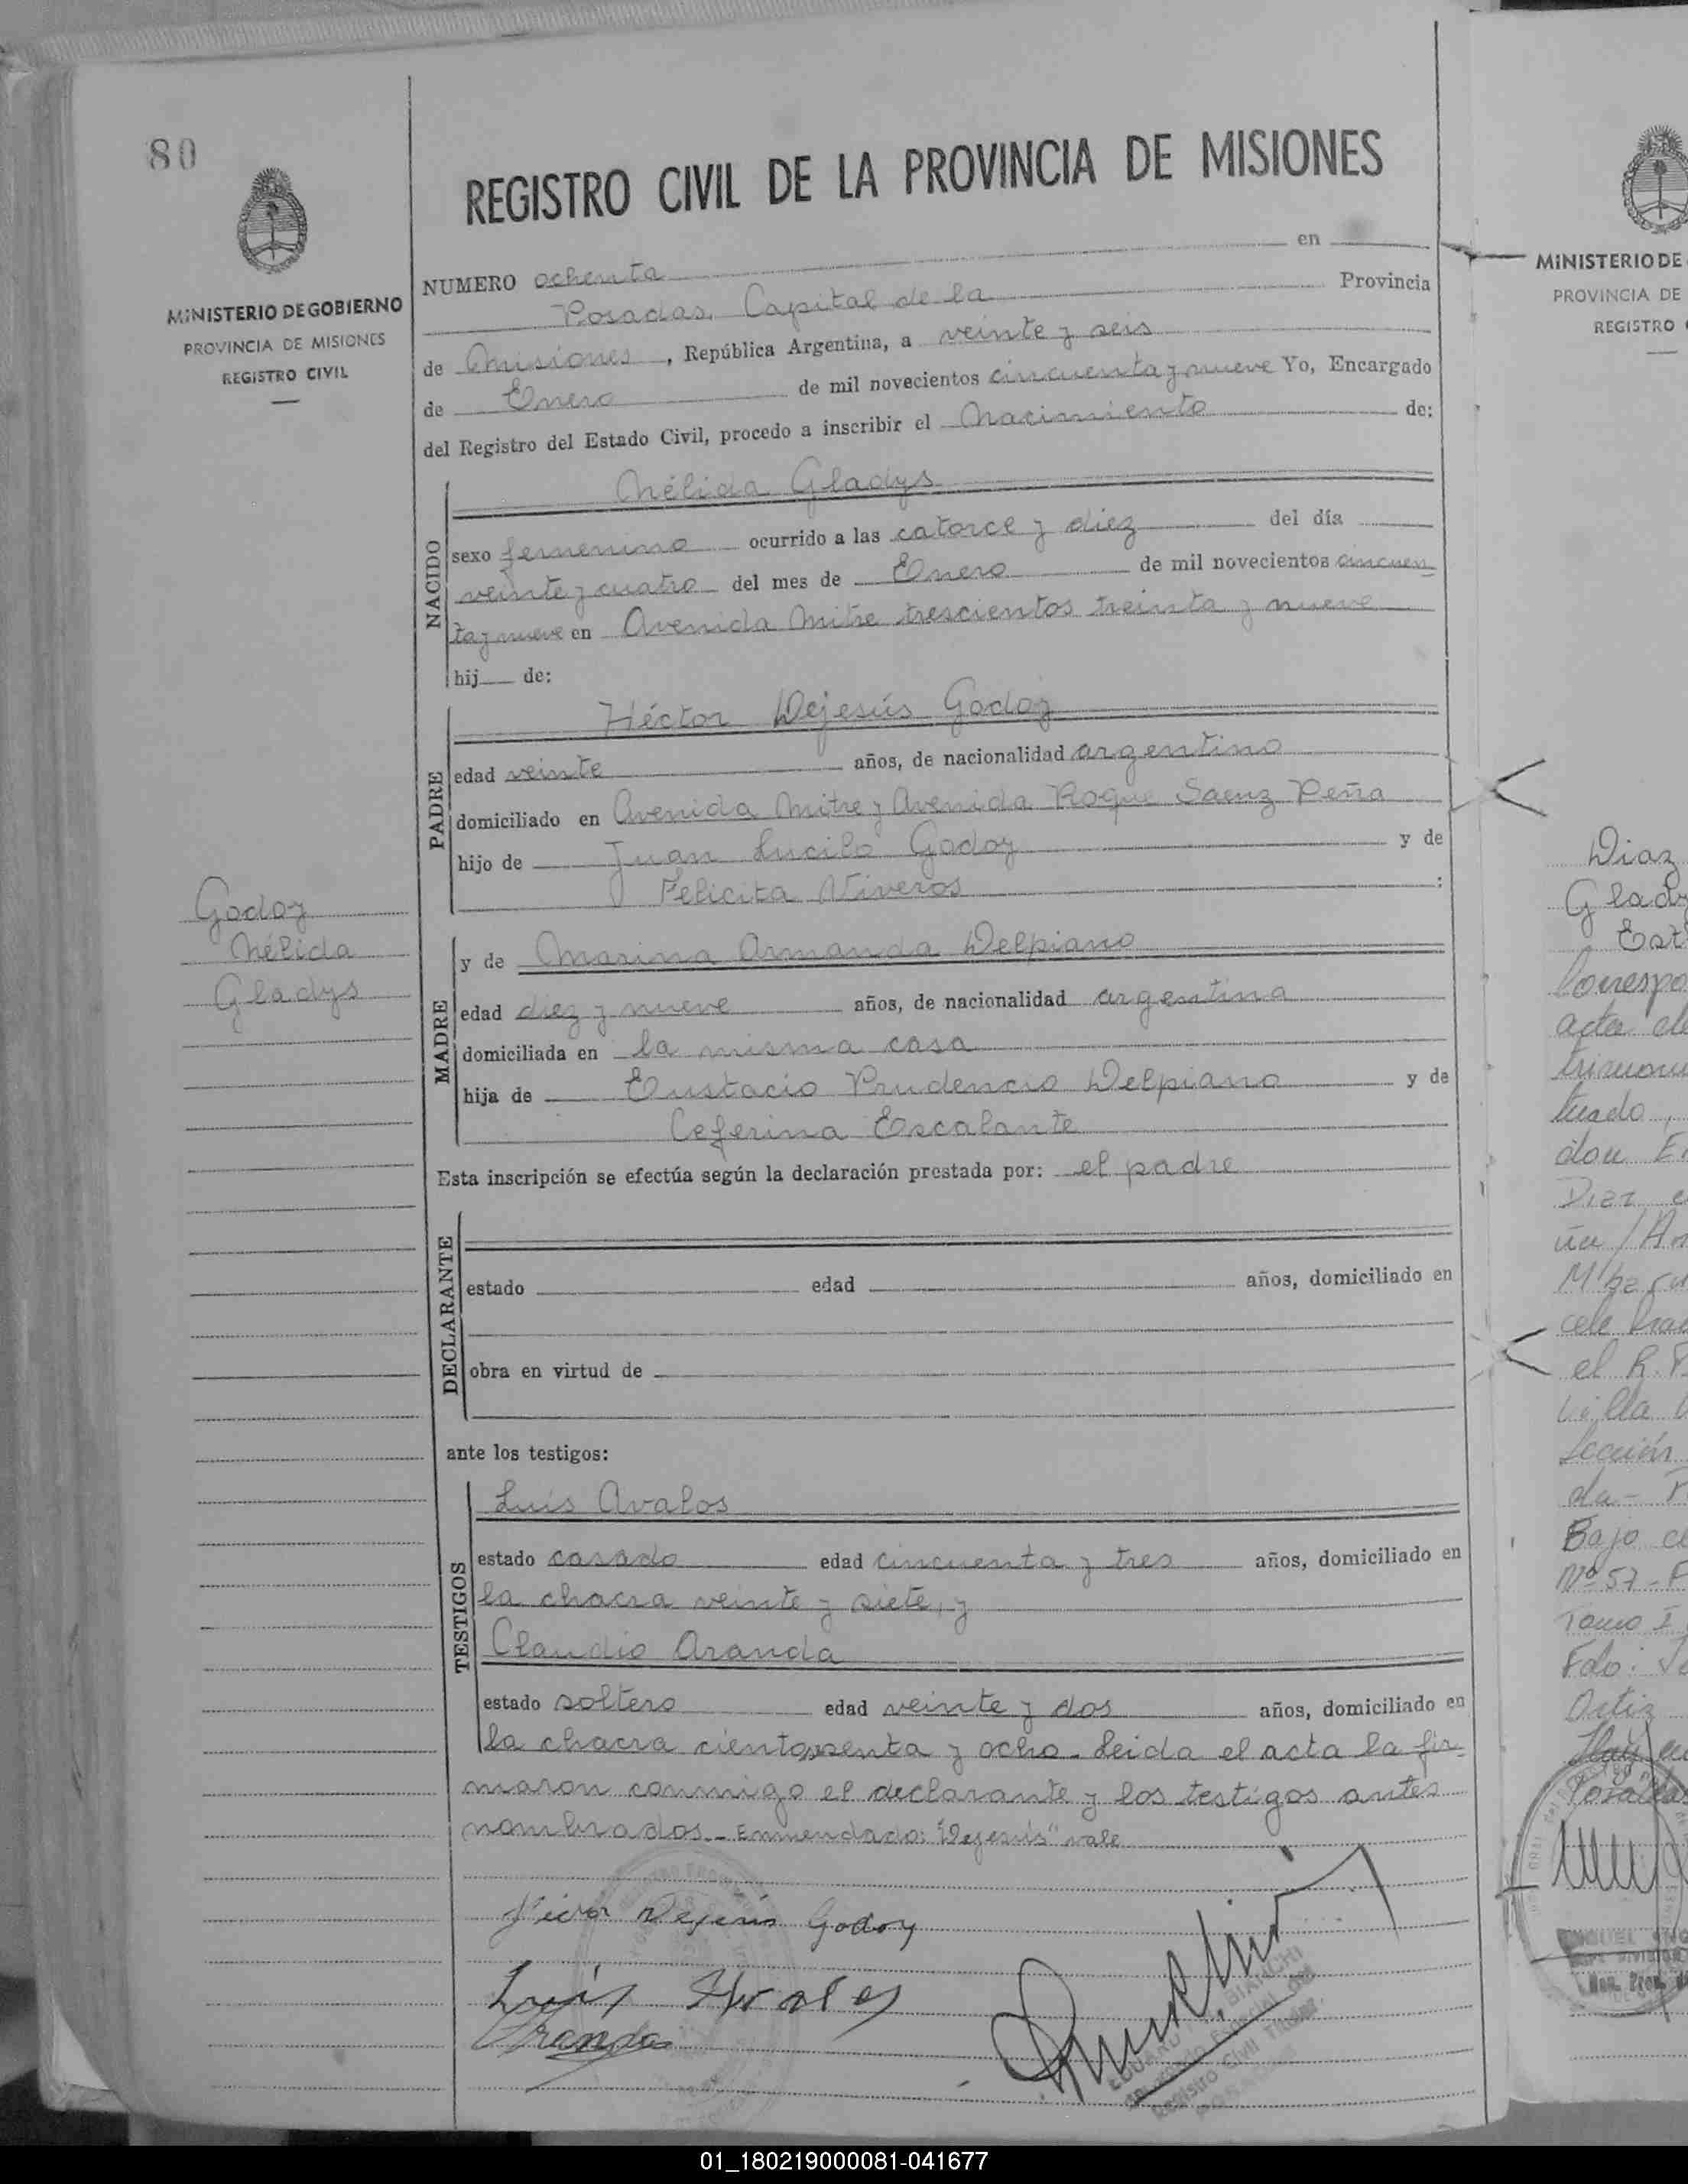 80
MINISTERIO DE GOBIERNO
PROVINCIA DE MISIONES
REGISTRO CIVIL
REGISTRO CIVIL DE LA PROVINCIA DE MISIONES
NUMERO ochenta en
Posadas, Capital de la Provincia
de Misiones, República Argentina, a veinte y seis
de Enero de mil novecientos cincuenta y nueve Yo, Encargado
del Registro del Estado Civil, procedo a inscribir el Nacimiento de:
NACIDO
Nélida Gladys
sexo femenino ocurrido a las catorce y diez del día
veinte y cuatro del mes de Enero de mil novecientos cincuen
ta y nueve en Avenida Mitre trescientos treinta y nueve
hij de:
PADRE
Héctor Dejesús Godoy
edad veinte años, de nacionalidad argentino
domiciliado en Avenida Mitre y Avenida Roque Saenz Peña
hijo de Juan Lucilo Godoy y de
Felicita Viveros :
MADRE
y de Marina Armanda Delpiano
edad diez y nueve años, de nacionalidad argentina
domiciliada en la misma casa
hija de Eustacio Prudencio Delpiano y de
Ceferina Escalante
Godoy
Nélida
Gladys
Esta inscripción se efectúa según la declaración prestada por: el padre
DECLARANTE
estado edad años, domiciliado en
obra en virtud de
ante los testigos:
TESTIGOS
Luis Avalos
estado casado edad cincuenta y tres años, domiciliado en
la chacra veinte y siete, y
Claudio Aranda
estado soltero edad veinte y dos años, domiciliado en
la chacra y ocho. Leida el acta la fir-
maron conmigo el declarante y los testigos antes
nombrados.- Enmendado: "Dejesús" vale
Dejesús Godoy
Luis Avalos
Aranda
BIANCHI
Registro Civil
MINISTERIO DE
PROVINCIA DE
REGISTRO
Diaz
Glady
Est
Corresp
acta de
tuado,
don E
Diaz
cele
el R.
Villa
Sección
da -
Bajo
Nº 57 - F
Tomo I
Fdo:
Ortiz
Posadas
01_180219000081-041677